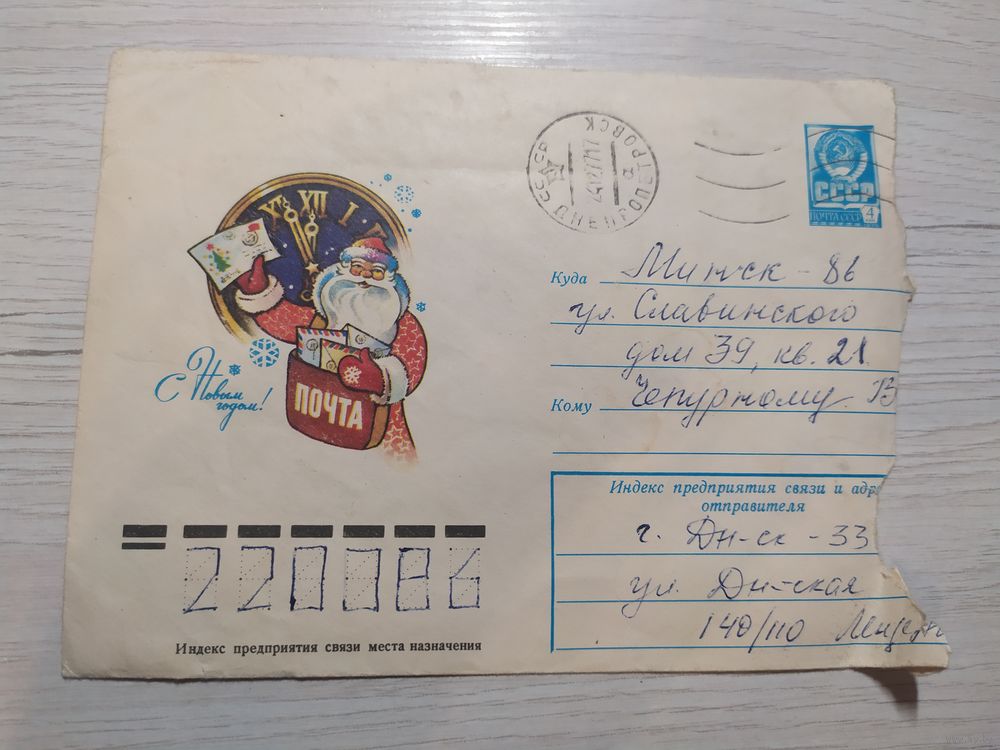 СССР
ДНЕПРОПЕТРОВСК
СССР
ПОЧТА СССР 4
XI XII I
С Новым
годом!
ПОЧТА
Куда Минск - 86
ул. Славинского
дом 39, кв. 21
Кому Чепурному В
Индекс предприятия связи и адр
отправителя
г. Дн-ск - 33
ул. Дн-ская
140/110
220086
Индекс предприятия связи места назначения